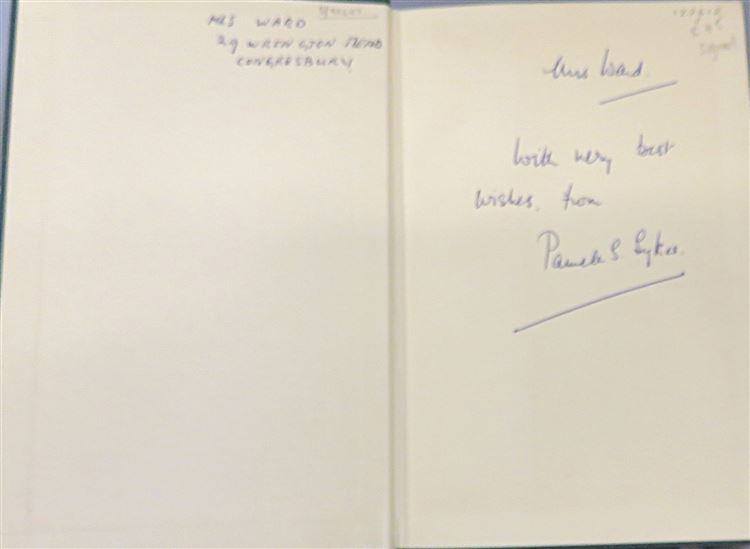 MRS WARD
29 WRINGTON MEAD
CONGRESBURY
Mrs Ward.
With very best
wishes, from
Pamela S Sykes.
signed